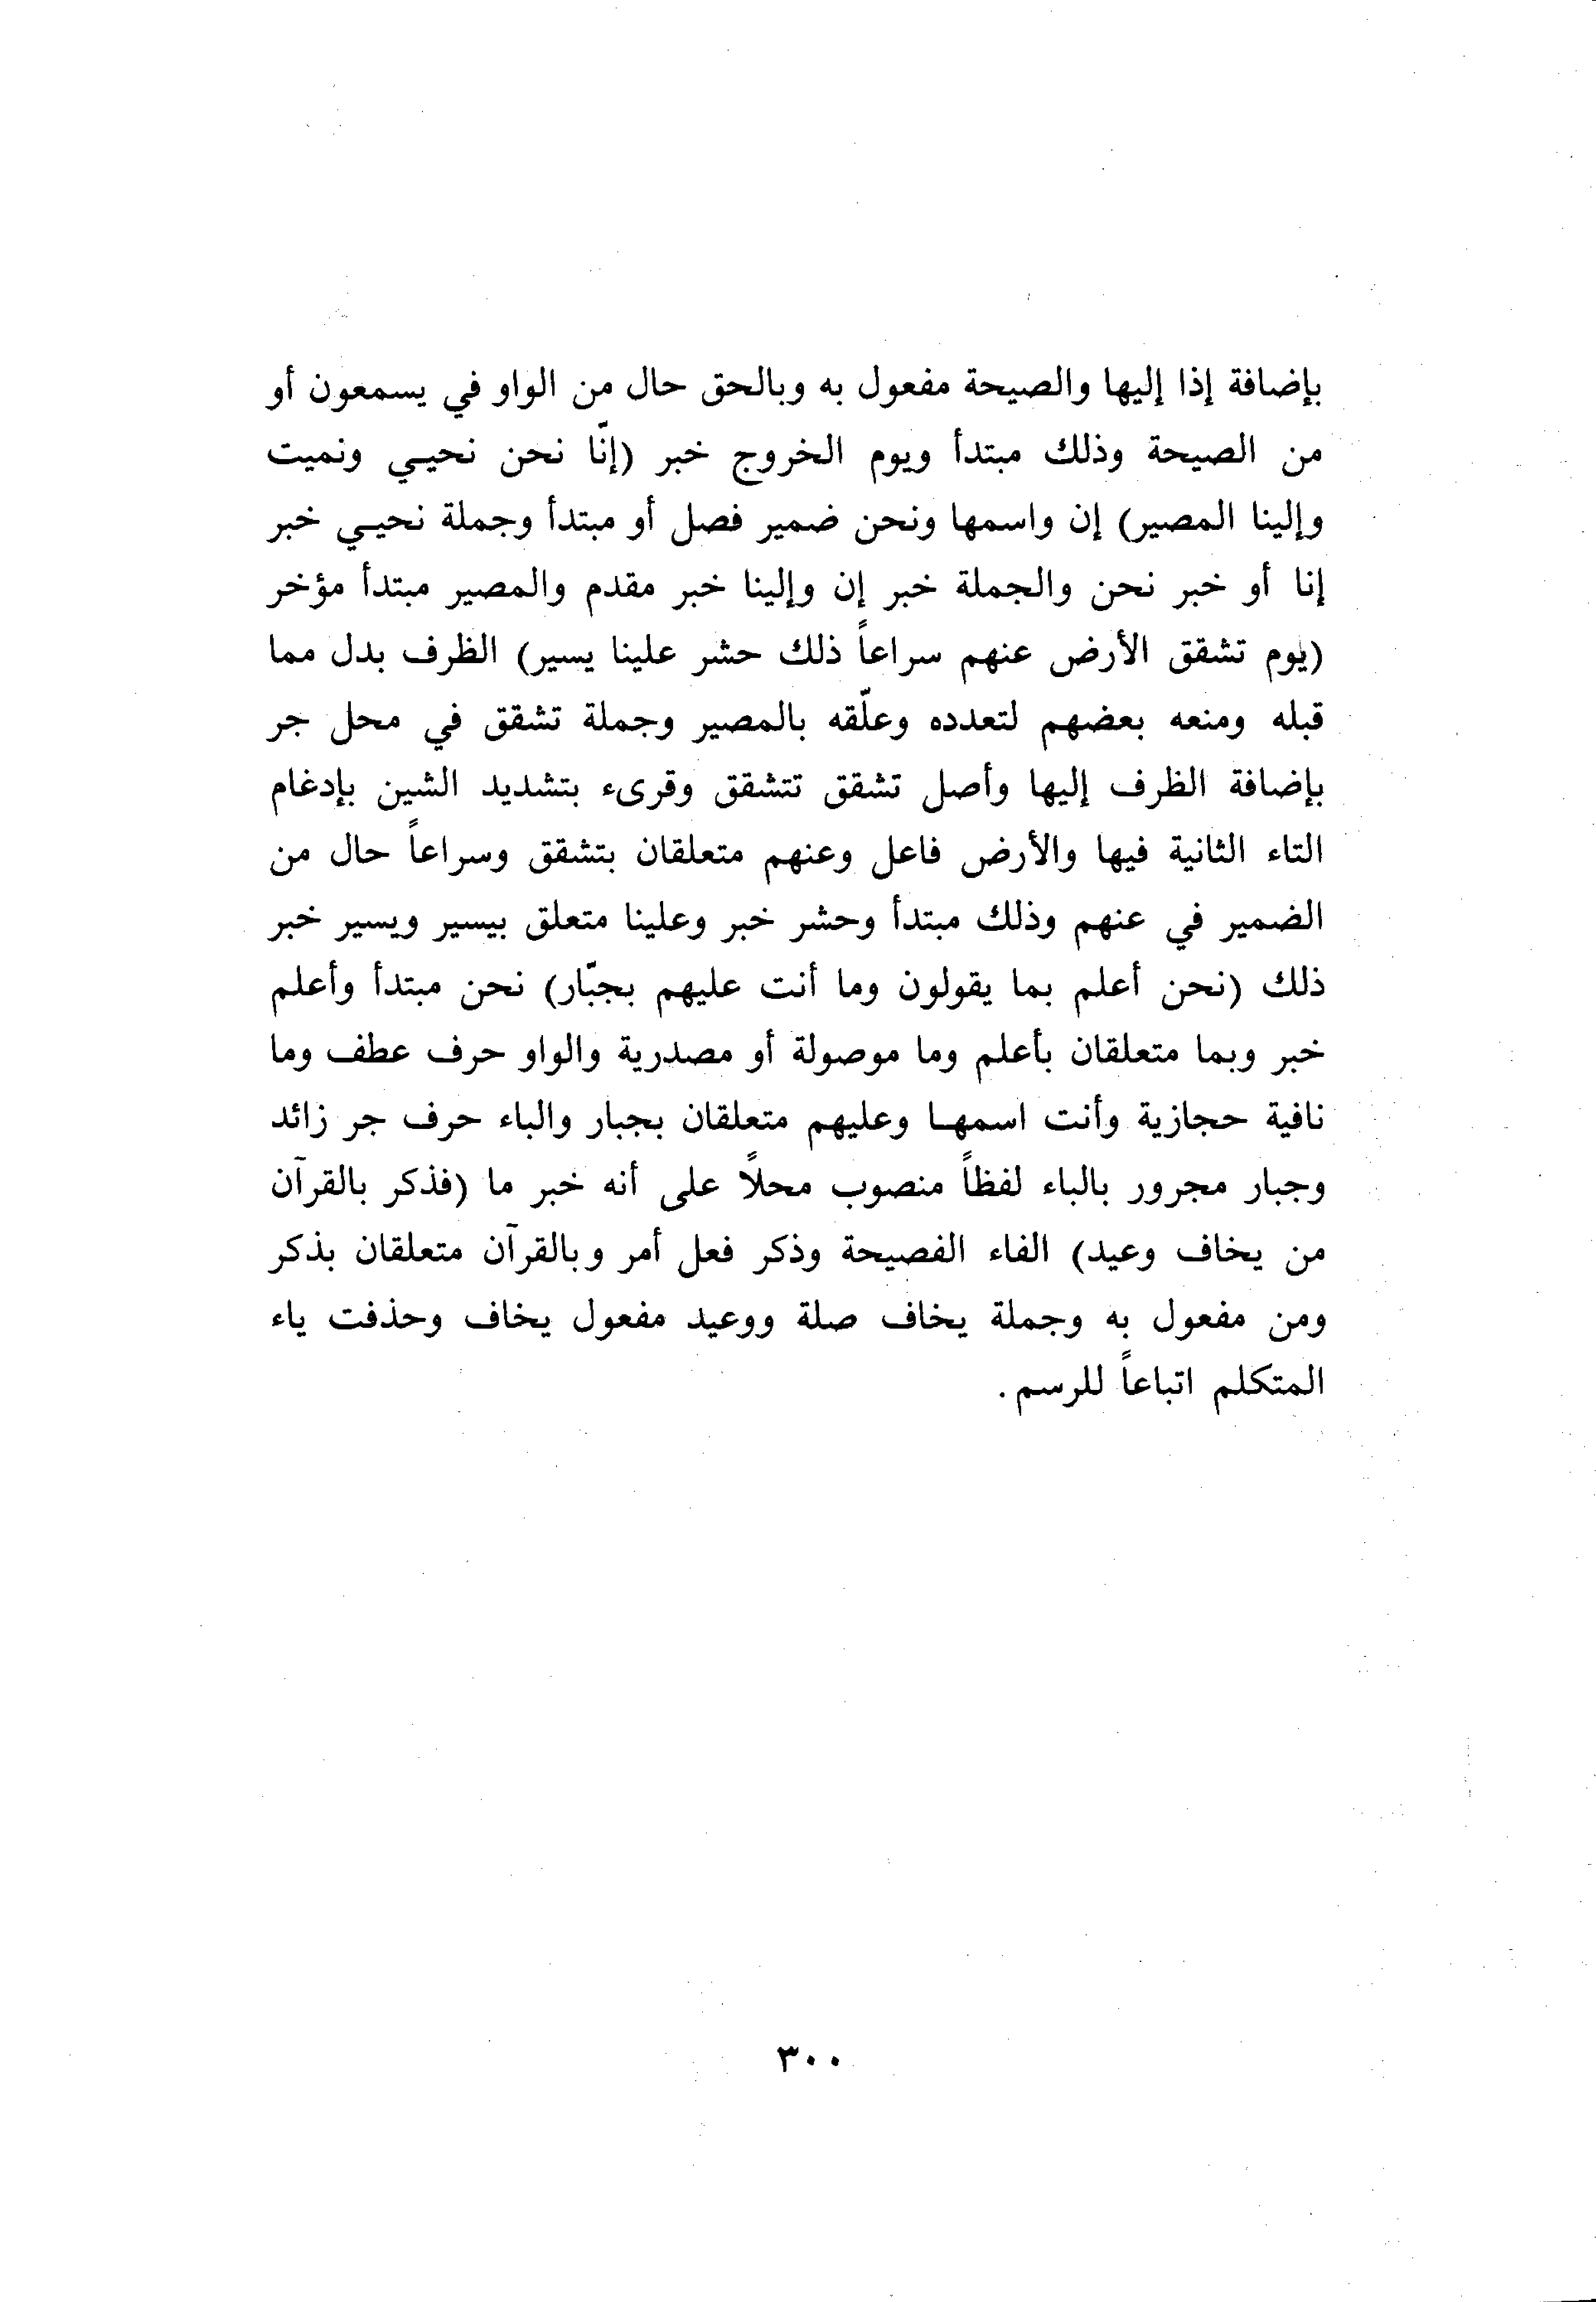 بإضافة إذا إليها والصيحة مفعول به وبالحق حال من الواو في يسمعون أو
من الصيحة وذلك مبتدأ ويوم الخروج خبر (إنّا نحن نحيـي ونميت
وإلينا المصير) إن واسمها ونحن ضمير فصل أو مبتدأ وجملة نحيـي خبر
إنا أو خبر نحن والجملة خبر إن وإلينا خبر مقدم والمصير مبتدأ مؤخر
(يوم تشقق الأرض عنهم سراعاً ذلك حشر علينا يسير) الظرف بدل مما
قبله ومنعه بعضهم لتعدده وعلّقه بالمصير وجملة تشقق في محل جر
بإضافة الظرف إليها وأصل تشقق تتشقق وقرىء بتشديد الشين بإدغام
التاء الثانية فيها والأرض فاعل وعنهم متعلقان بتشقق وسراعاً حال من
الضمير في عنهم وذلك مبتدأ وحشر خبر وعلينا متعلق بيسير ويسير خبر
ذلك (نحن أعلم بما يقولون وما أنت عليهم بجبّار) نحن مبتدأ وأعلم
خبر وبما متعلقان بأعلم وما موصولة أو مصدرية والواو حرف عطف وما
نافية حجازية وأنت اسمهـا وعليهم متعلقان بجبار والباء حرف جر زائد
وجبار مجرور بالباء لفظاً منصوب محلاً على أنه خبر ما (فذكر بالقرآن
من يخاف وعيد) الفاء الفصيحة وذكر فعل أمر وبالقرآن متعلقان بذكر
ومن مفعول به وجملة يخاف صلة ووعيد مفعول يخاف وحذفت ياء
المتكلم اتباعاً للرسم.
٣٠٠